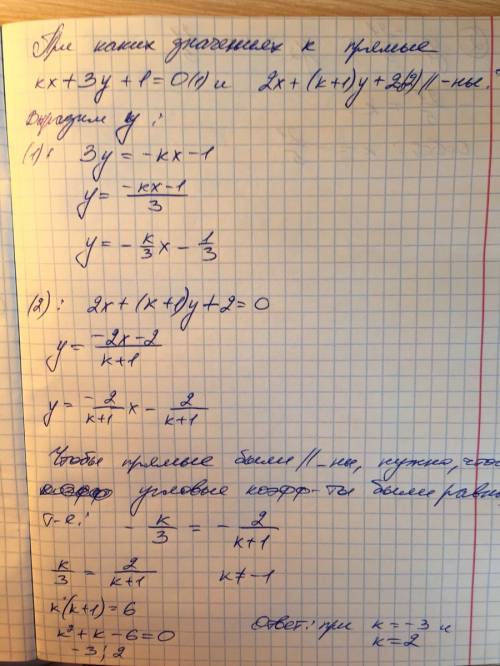 При каких значениях к прямые
кх + 3у + 1 = 0 (1) и 2х + (к+1)у + 2 (2) || -ны.
Выразим у:
(1): 3у = -кх - 1
у = \frac{-кх-1}{3}
у = - \frac{к}{3} х - \frac{1}{3}
(2): 2х + (к+1)у + 2 = 0
у = \frac{-2х-2}{к+1}
у = \frac{-2}{к+1} х - \frac{2}{к+1}
Чтобы прямые были || -ны, нужно, что
угловые коэфф-ты были равн
т-е: - \frac{к}{3} = - \frac{2}{к+1}
\frac{к}{3} = \frac{2}{к+1} к ≠ -1
к(к+1) = 6
к² + к - 6 = 0
-3; 2
Ответ: при к = -3 и
к = 2